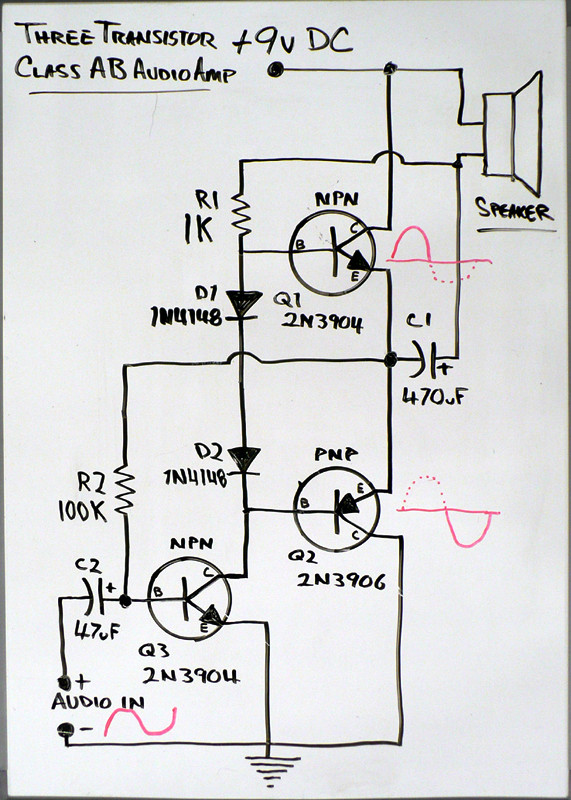 THREE TRANSISTOR +9V DC
CLASS AB AUDIO AMP
SPEAKER
R1
1K
NPN
B
C
E
Q1
2N3904
D1
1N4148
C1
+
470uF
D2
1N4148
PNP
B
E
C
Q2
2N3906
R2
100K
C2
+
47uF
NPN
B
C
E
Q3
2N3904
+
AUDIO IN
-